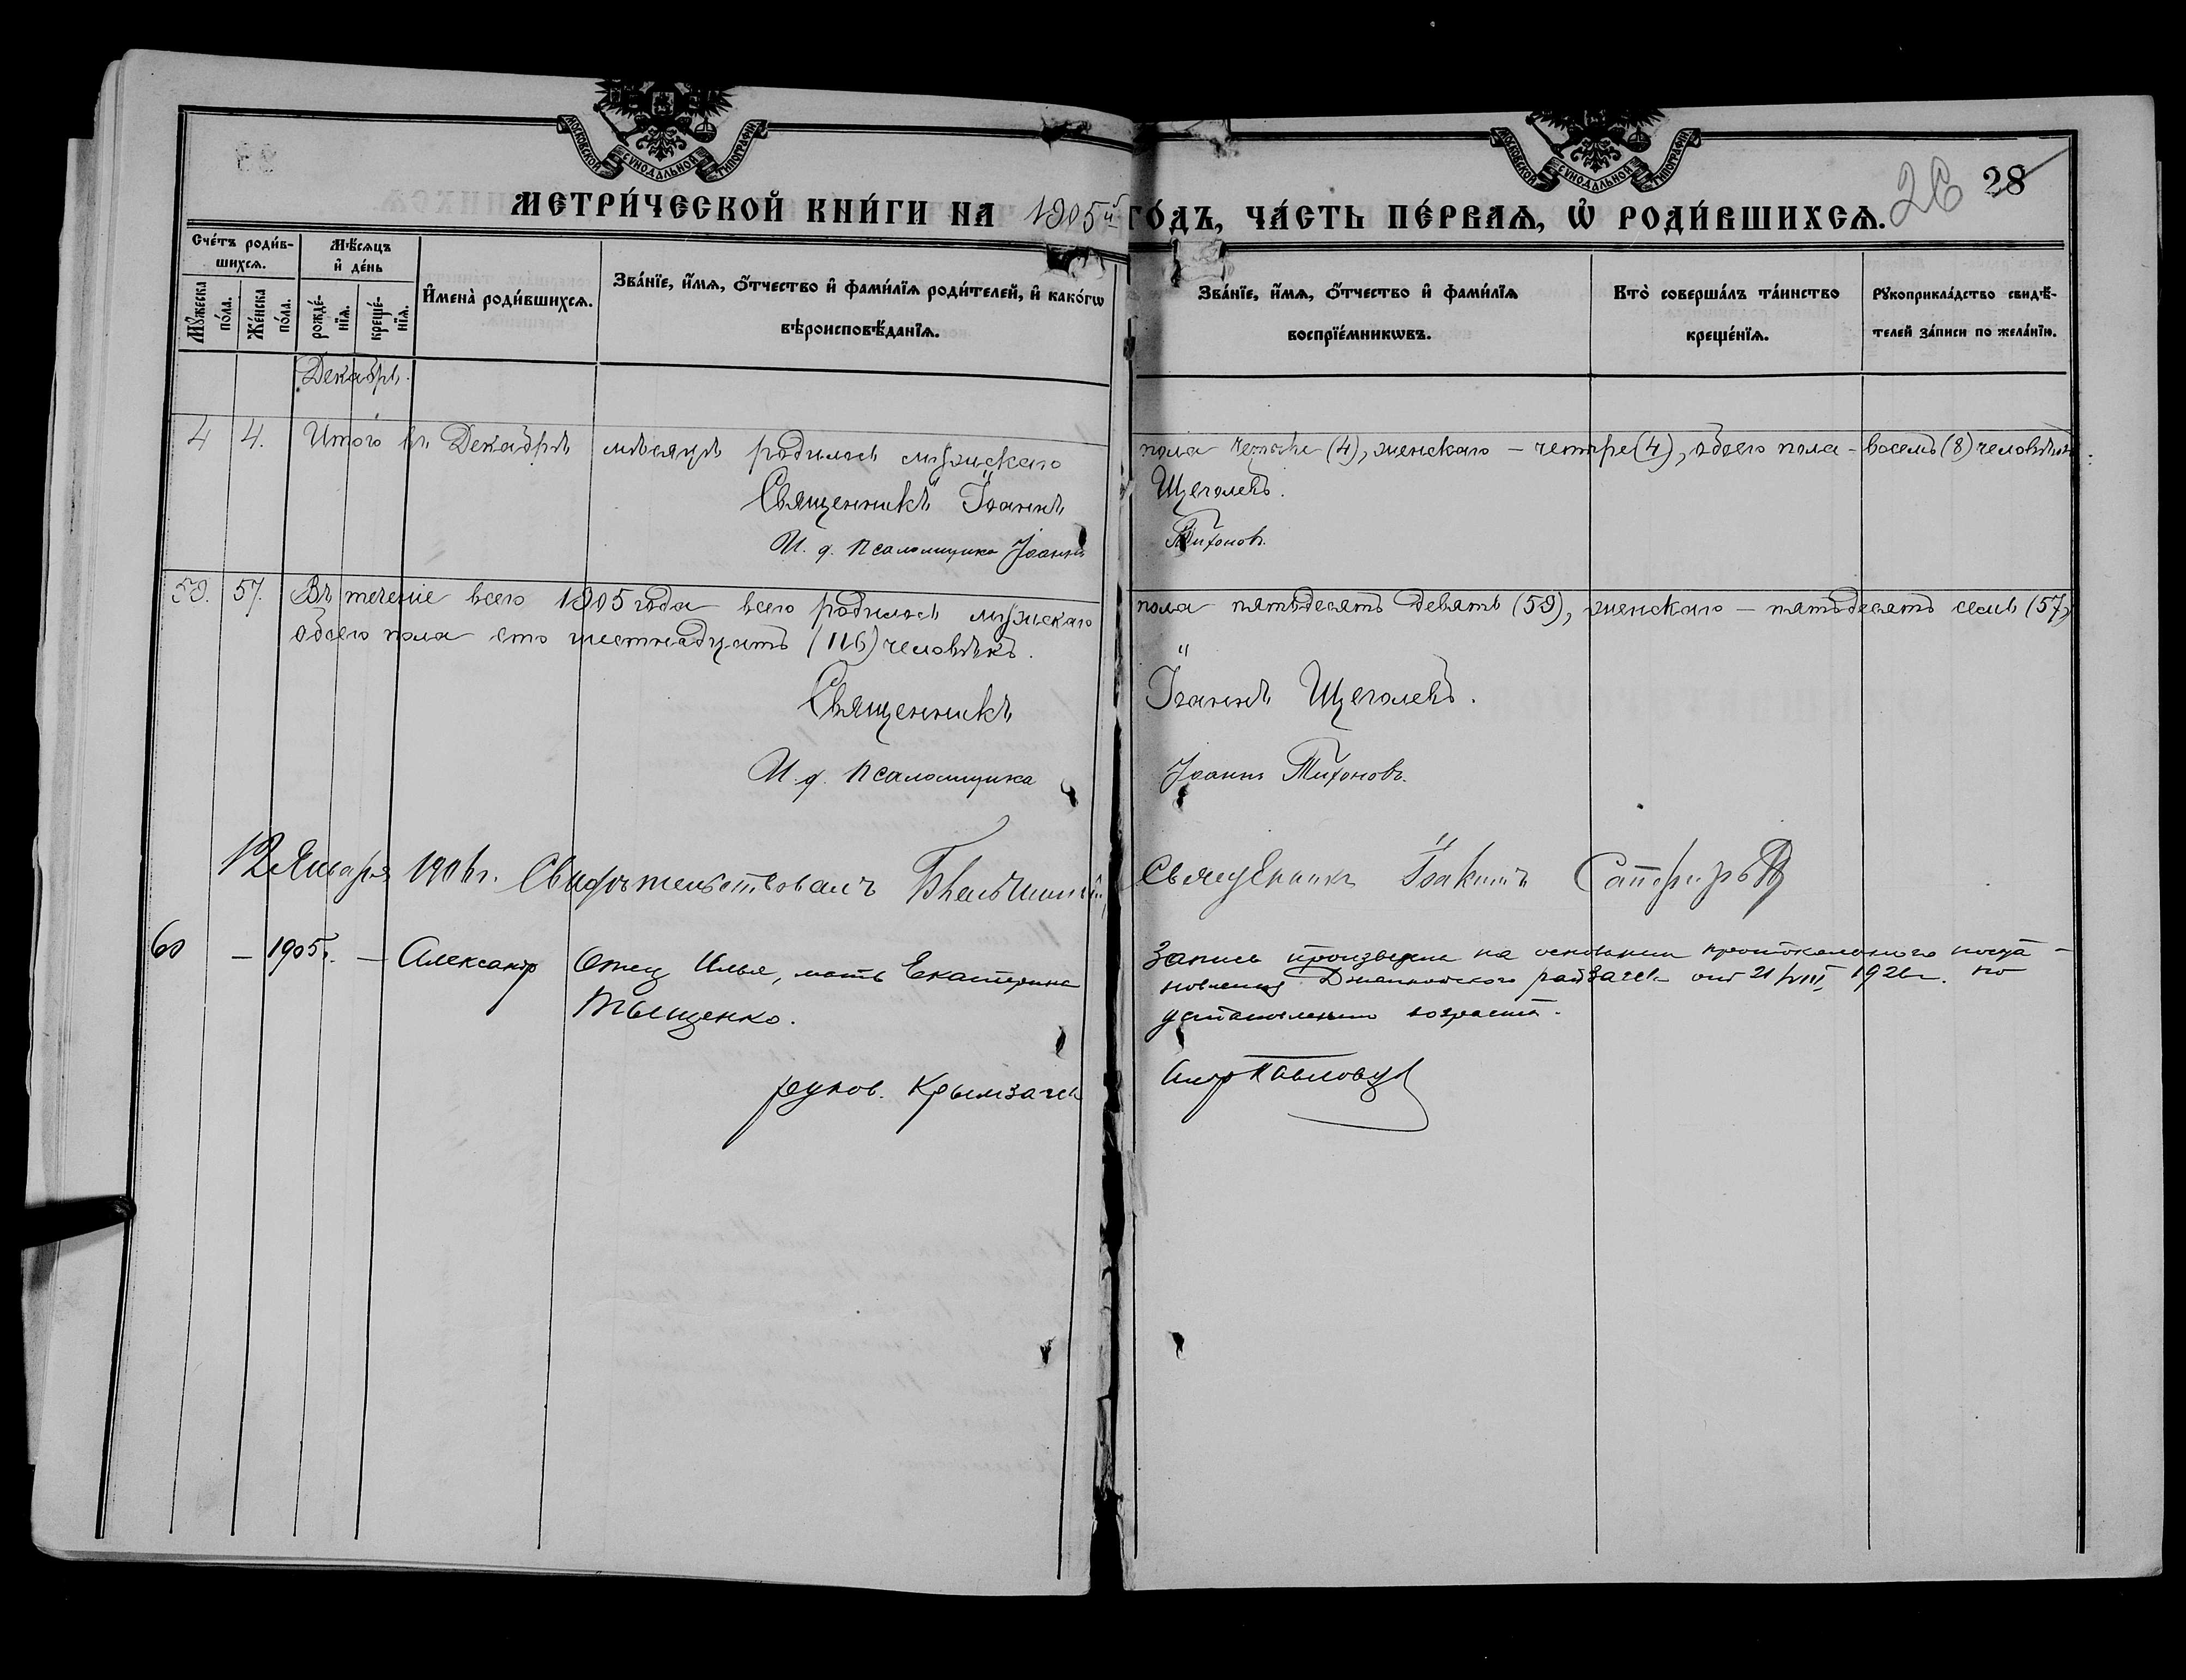 МОСКОВСКОЙ СѴНОДАЛЬНОЙ ТИПОГРАФІИ
МОСКОВСКОЙ СѴНОДАЛЬНОЙ ТИПОГРАФІИ
28
26
МЕТРИ́ЧЕСКОЙ КНИ́ГИ НА 1905й ГО́ДЪ, ЧА́СТЬ ПЕ́РВАѦ, Ѡ РОДИ́ВШИХСѦ.
Сче́тъ роди́в-
шихсѧ.
Мꙋ́жеска по́ла.
Же́нска по́ла.
Мѣ́сѧцъ
и҆ де́нь
рожде́-
нїѧ.
креще́-
нїѧ.
И҆мена̀ роди́вшихсѧ.
Зва́нїе, и҆́мѧ, ѻ҆́тчество и҆ фами́лїѧ роди́телей, и҆ како́гѡ
вѣроисповѣ́данїѧ.
Зва́нїе, и҆́мѧ, ѻ҆́тчество и҆ фами́лїѧ
воспрїе́мникѡвъ.
Кто̀ соверша́лъ та́инство
креще́нїѧ.
Рꙋкоприкла́дство свидѣ́-
телей за́писи по жела́нїю.
Декабрь.
4 4. Итого въ Декабрѣ мѣсяцѣ родилось мужскаго пола четыре (4), женскаго – четыре (4), обоего пола – восемь (8) человѣкъ
Священникъ Іоаннъ Щеголевъ.
И. д. псаломщика Іоаннъ Тихоновъ.
59. 57. Въ теченіе всего 1905 года всего родилось мужскаго пола пятьдесятъ девять (59), женскаго – пятьдесятъ семь (57)
обоего пола сто шестнадцать (116) человѣкъ.
Священникъ Іоаннъ Щеголевъ.
И. д. псаломщика Іоаннъ Тихоновъ.
12 Января 1906 г. Свидѣтельствовалъ Священникъ Іоакимъ
60 – 1905 г. – Александр Отец Илья, мать Екатерина
Тыщенко.
Запись произведена на основании протокольного поста-
новления Джанкойского райзагса от 21/VIII 1926 г. по
установлению возраста.
руков. Крымзагса